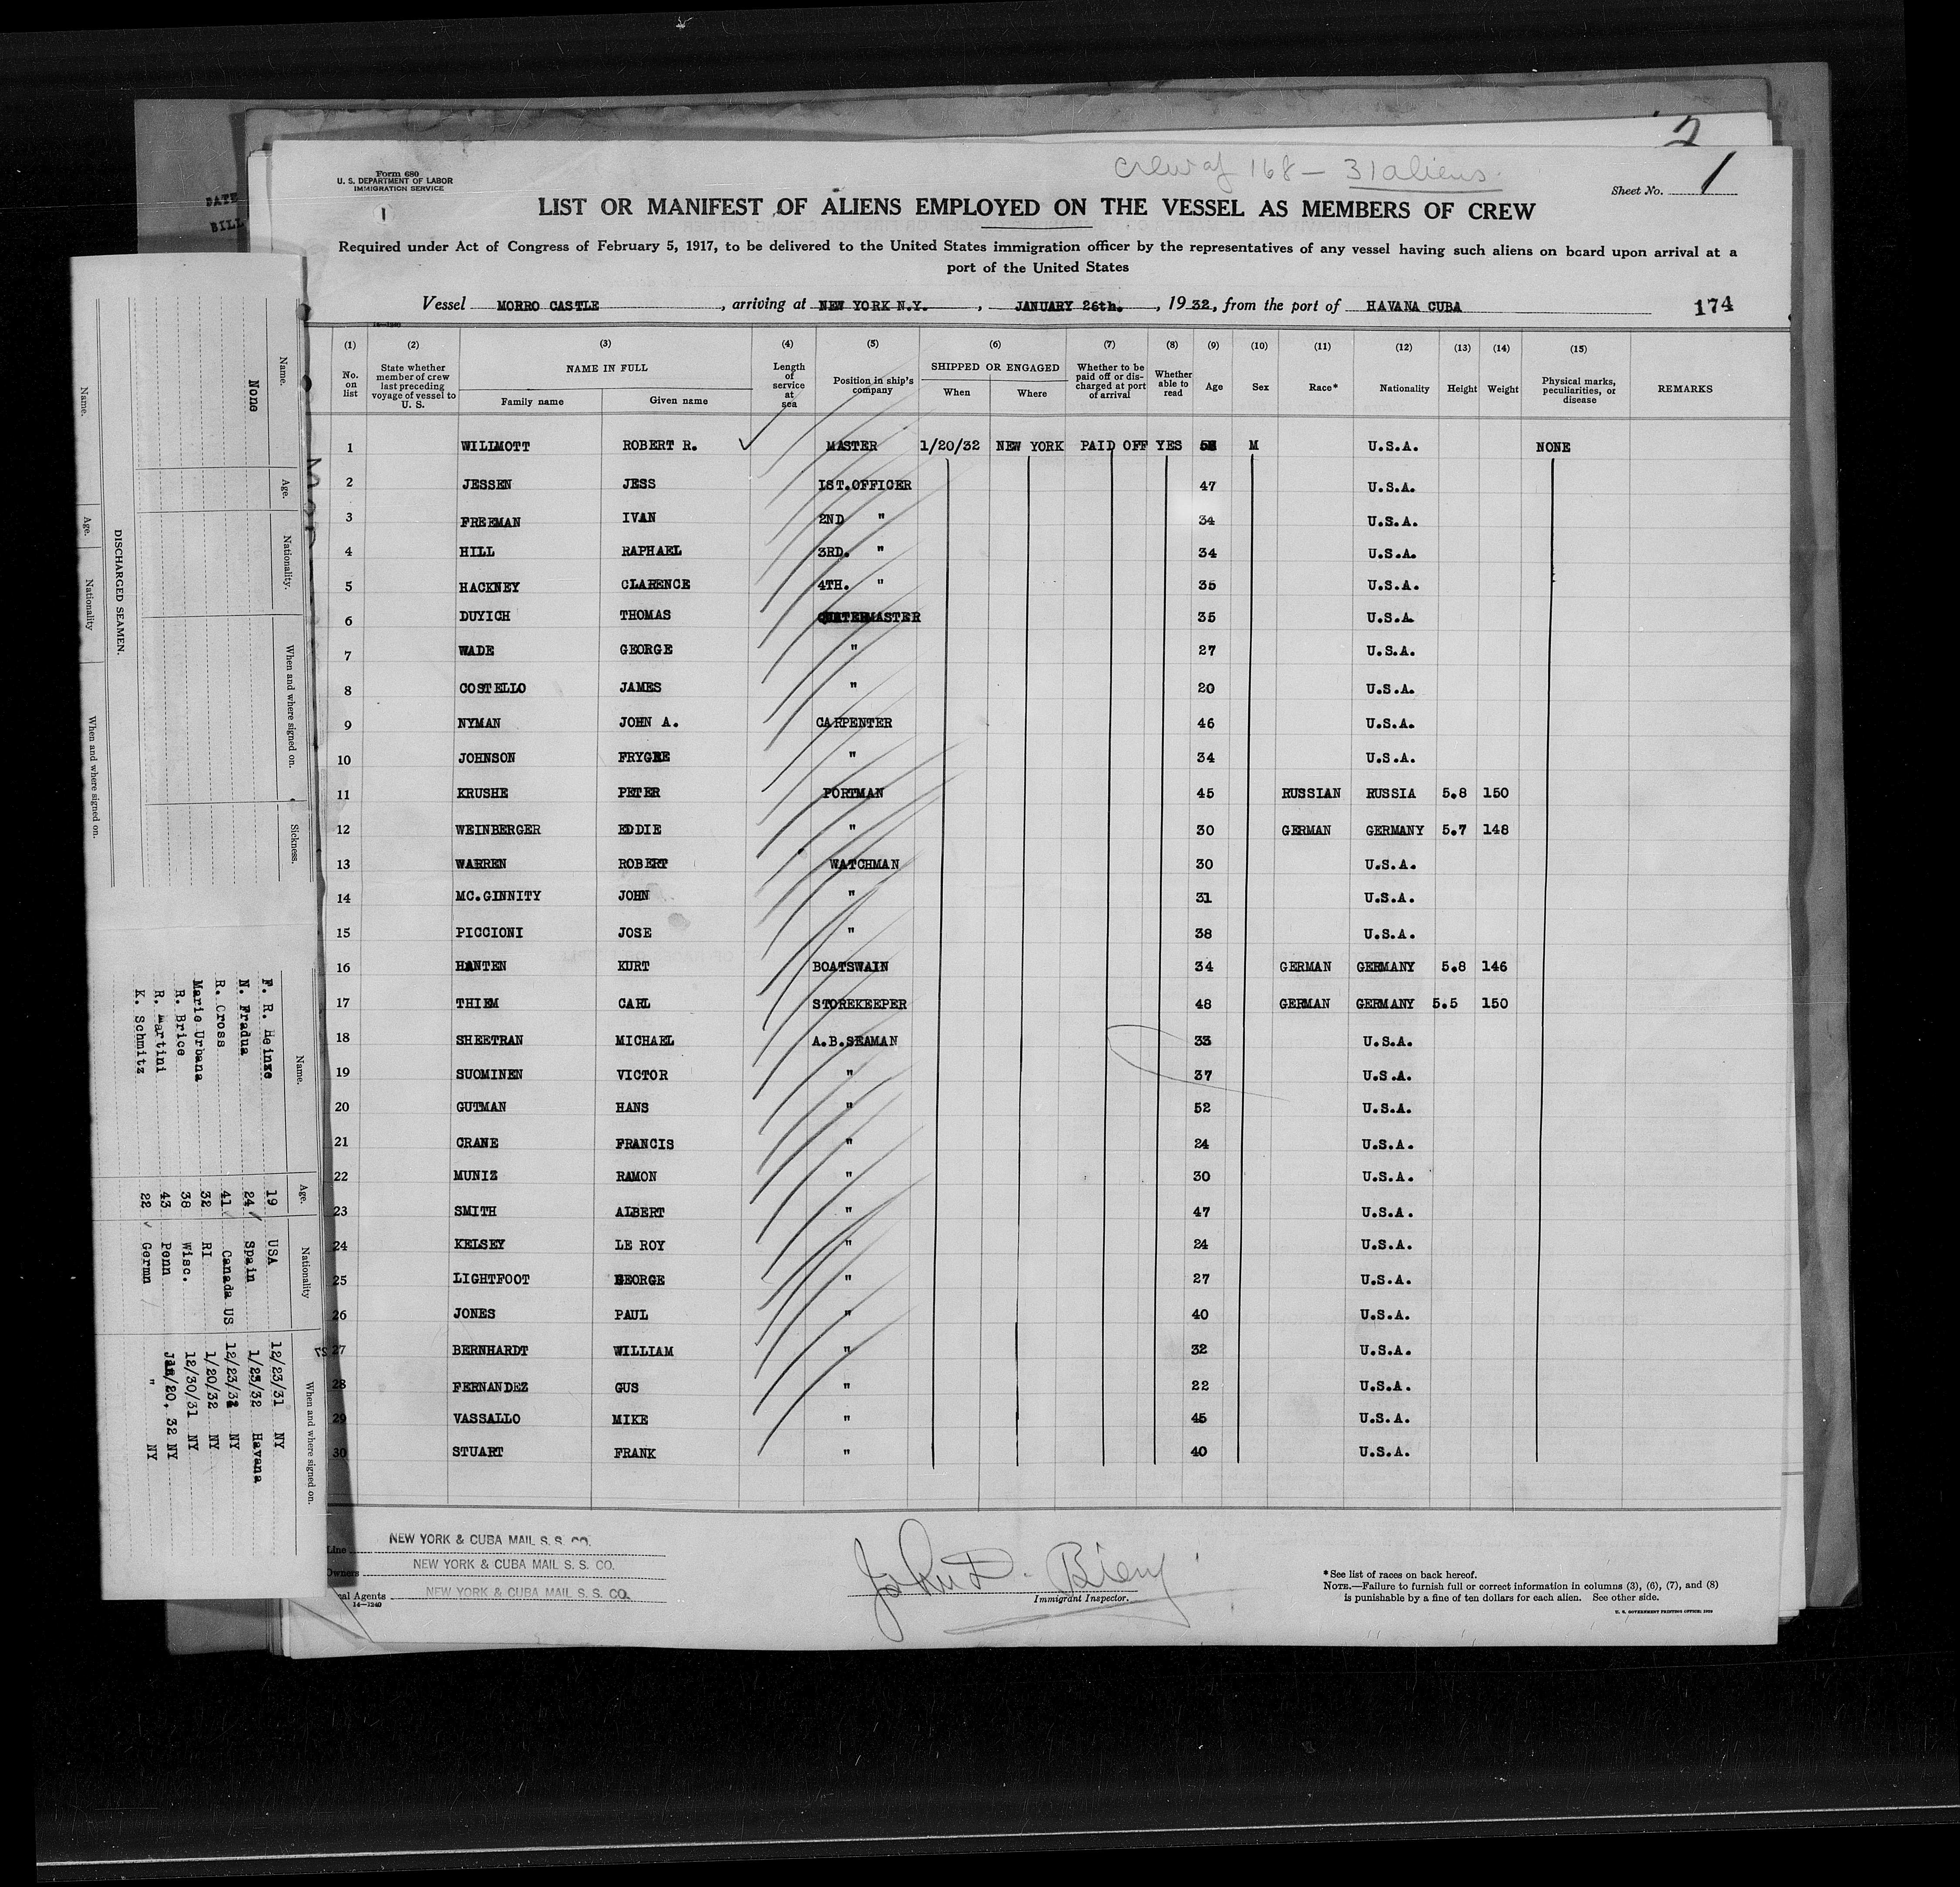 2
crew of 168 – 31 aliens.
Form 680
U. S. DEPARTMENT OF LABOR
IMMIGRATION SERVICE
Sheet No. 1
DATE
BILL
1
LIST OR MANIFEST OF ALIENS EMPLOYED ON THE VESSEL AS MEMBERS OF CREW
Required under Act of Congress of February 5, 1917, to be delivered to the United States immigration officer by the representatives of any vessel having such aliens on board upon arrival at a
port of the United States
Vessel MORRO CASTLE, arriving at NEW YORK N.Y., JANUARY 26th., 1932, from the port of HAVANA CUBA 174
14—1240
(1) (2) (3) (4) (5) (6) (7) (8) (9) (10) (11) (12) (13) (14) (15)
No. on list State whether member of crew last preceding voyage of vessel to U. S. NAME IN FULL Family name Given name Length of service at sea Position in ship's company SHIPPED OR ENGAGED When Where Whether to be paid off or discharged at port of arrival Whether able to read Age Sex Race* Nationality Height Weight Physical marks, peculiarities, or disease REMARKS
1 WILLMOTT ROBERT R. MASTER 1/20/32 NEW YORK PAID OFF YES M U.S.A. NONE
2 JESSEN JESS 1ST.OFFICER 47 U.S.A.
3 FREEMAN IVAN 2ND " 34 U.S.A.
4 HILL RAPHAEL 3RD. " 34 U.S.A.
5 HACKNEY CLARENCE 4TH. " 35 U.S.A.
6 DUYICH THOMAS 35 U.S.A
7 WADE GEORGE " 27 U.S.A.
8 COSTELLO JAMES " 20 U.S.A.
9 NYMAN JOHN A. CARPENTER 46 U.S.A.
10 JOHNSON FRYGRE " 34 U.S.A.
11 KRUSHE PETER PORTMAN 45 RUSSIAN RUSSIA 5.8 150
12 WEINBERGER EDDIE " 30 GERMAN GERMANY 5.7 148
13 WARREN ROBERT WATCHMAN 30 U.S.A.
14 MC.GINNITY JOHN " 31 U.S.A.
15 PICCIONI JOSE " 38 U.S.A.
16 HANTEN KURT BOATSWAIN 34 GERMAN GERMANY 5.8 146
17 THIEM CARL STOREKEEPER 48 GERMAN GERMANY 5.5 150
18 SHEETRAN MICHAEL A.B.SEAMAN 33 U.S.A.
19 SUOMINEN VICTOR " 37 U.S.A.
20 GUTMAN HANS " 52 U.S.A.
21 CRANE FRANCIS " 24 U.S.A.
22 MUNIZ RAMON " 30 U.S.A.
23 SMITH ALBERT " 47 U.S.A.
24 KELSEY LE ROY " 24 U.S.A.
25 LIGHTFOOT GEORGE " 27 U.S.A.
26 JONES PAUL " 40 U.S.A.
27 BERNHARDT WILLIAM " 32 U.S.A.
28 FERNANDEZ GUS " 22 U.S.A.
29 VASSALLO MIKE " 45 U.S.A.
30 STUART FRANK " 40 U.S.A.
Line NEW YORK & CUBA MAIL S. S. CO.
Owners NEW YORK & CUBA MAIL S. S. CO.
Local Agents NEW YORK & CUBA MAIL S. S. CO.
14—1240
John D.
Immigrant Inspector.
* See list of races on back hereof.
NOTE.—Failure to furnish full or correct information in columns (3), (6), (7), and (8)
is punishable by a fine of ten dollars for each alien. See other side.
U. S. GOVERNMENT PRINTING OFFICE: 1929
Name. Age. Nationality. When and where signed on. Sickness.
None
DISCHARGED SEAMEN.
Name. Age. Nationality When and where signed on.
Name. Age. Nationality When and where signed on.
F. R. Heinze 19 USA 12/23/31 NY
N. Fradua 24 Spain 1/23/32 Havana
R. Cross 41 Canada US 12/23/31 NY
Marie Urbana 32 RI 1/20/32 NY
R. Brice 38 Wisc. 12/30/31 NY
R. Martini 43 Penn Jan/20, 32 NY
K. Schmitz 22 Germn " NY